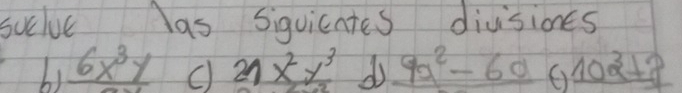 suelve las siguientes divisiones
b) 6x³y c) 21x²y³ d) 9a² - 6a